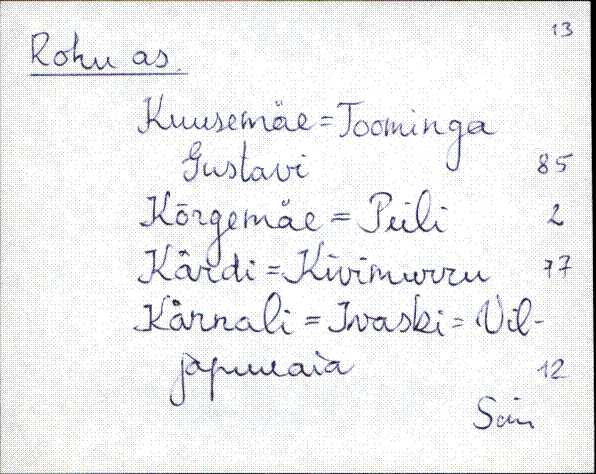 13
Rohu as.
Kuusemäe = Toominga
Gustavi 85
Kõrgemäe = Piili 2
Kärdi = Kivimurru 77
Kärnali = Ivaski = Vil-
japuuaia 12